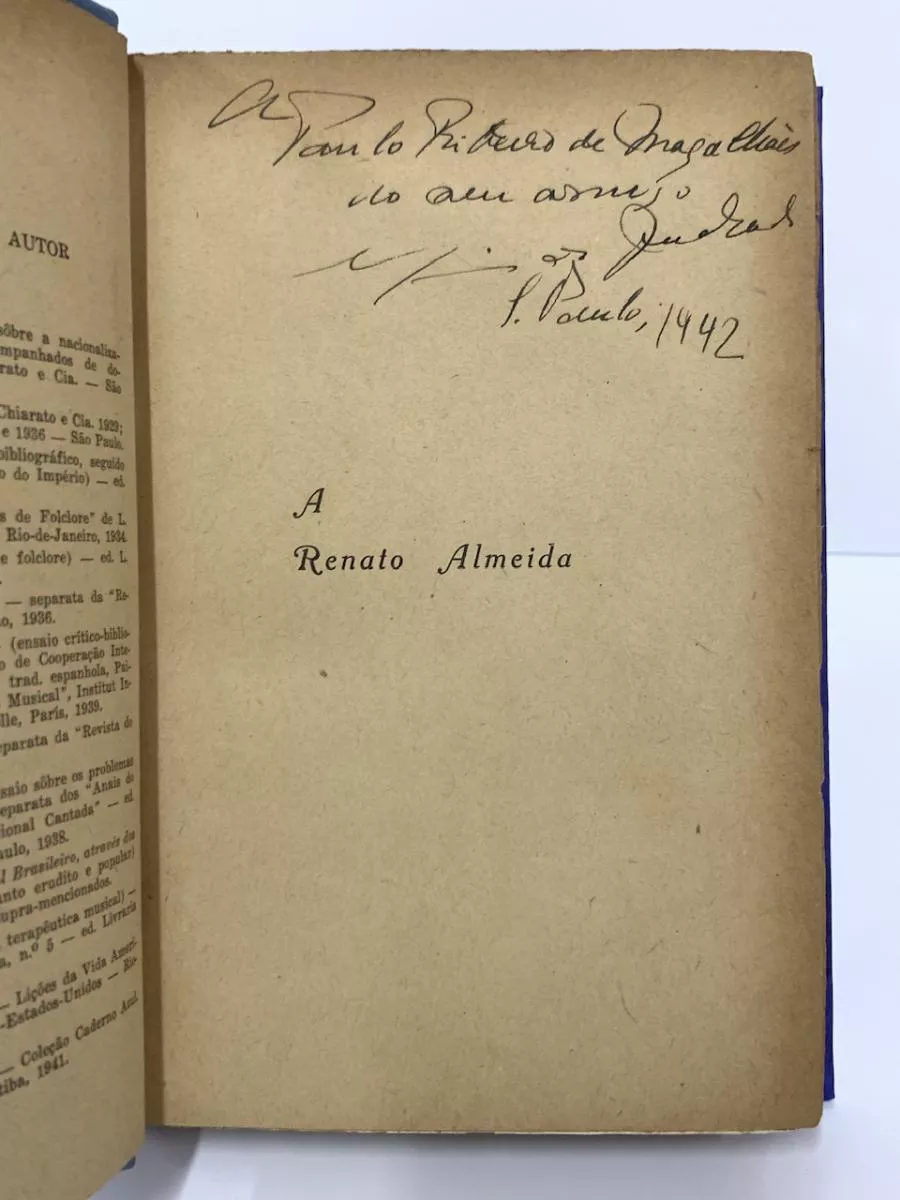 AUTOR
sôbre a nacionaliza-
ompanhados de do-
rato e Cia. — São
Chiarato e Cia. 1929;
e 1936 — São Paulo.
bibliográfico, seguido
o do Império) — ed.
s de Folclore" de L.
Rio-de-Janeiro, 1934
e folclore) — ed. L.
— separata da "Re-
o, 1936.
(ensaio crítico-biblio-
o de Cooperação Inte-
trad. espanhola, Psi-
Musical", Institut In-
lle, París, 1939.
eparata da "Revista do
saio sôbre os problemas
eparata dos "Anais do
ional Cantada" — ed
aulo, 1938.
l Brasileiro, através dos
anto erudito e popular)
supra-mencionados.
terapêutica musical) —
a, n.º 5 — ed. Livraria
— Lições da Vida Ameri-
-Estados-Unidos — Rio-
— Coleção Caderno Azul.
tiba, 1941.
A
Paulo Ribeiro de Magalhães
do seu amigo
Andrade
S. Paulo, 1942
A
Renato Almeida